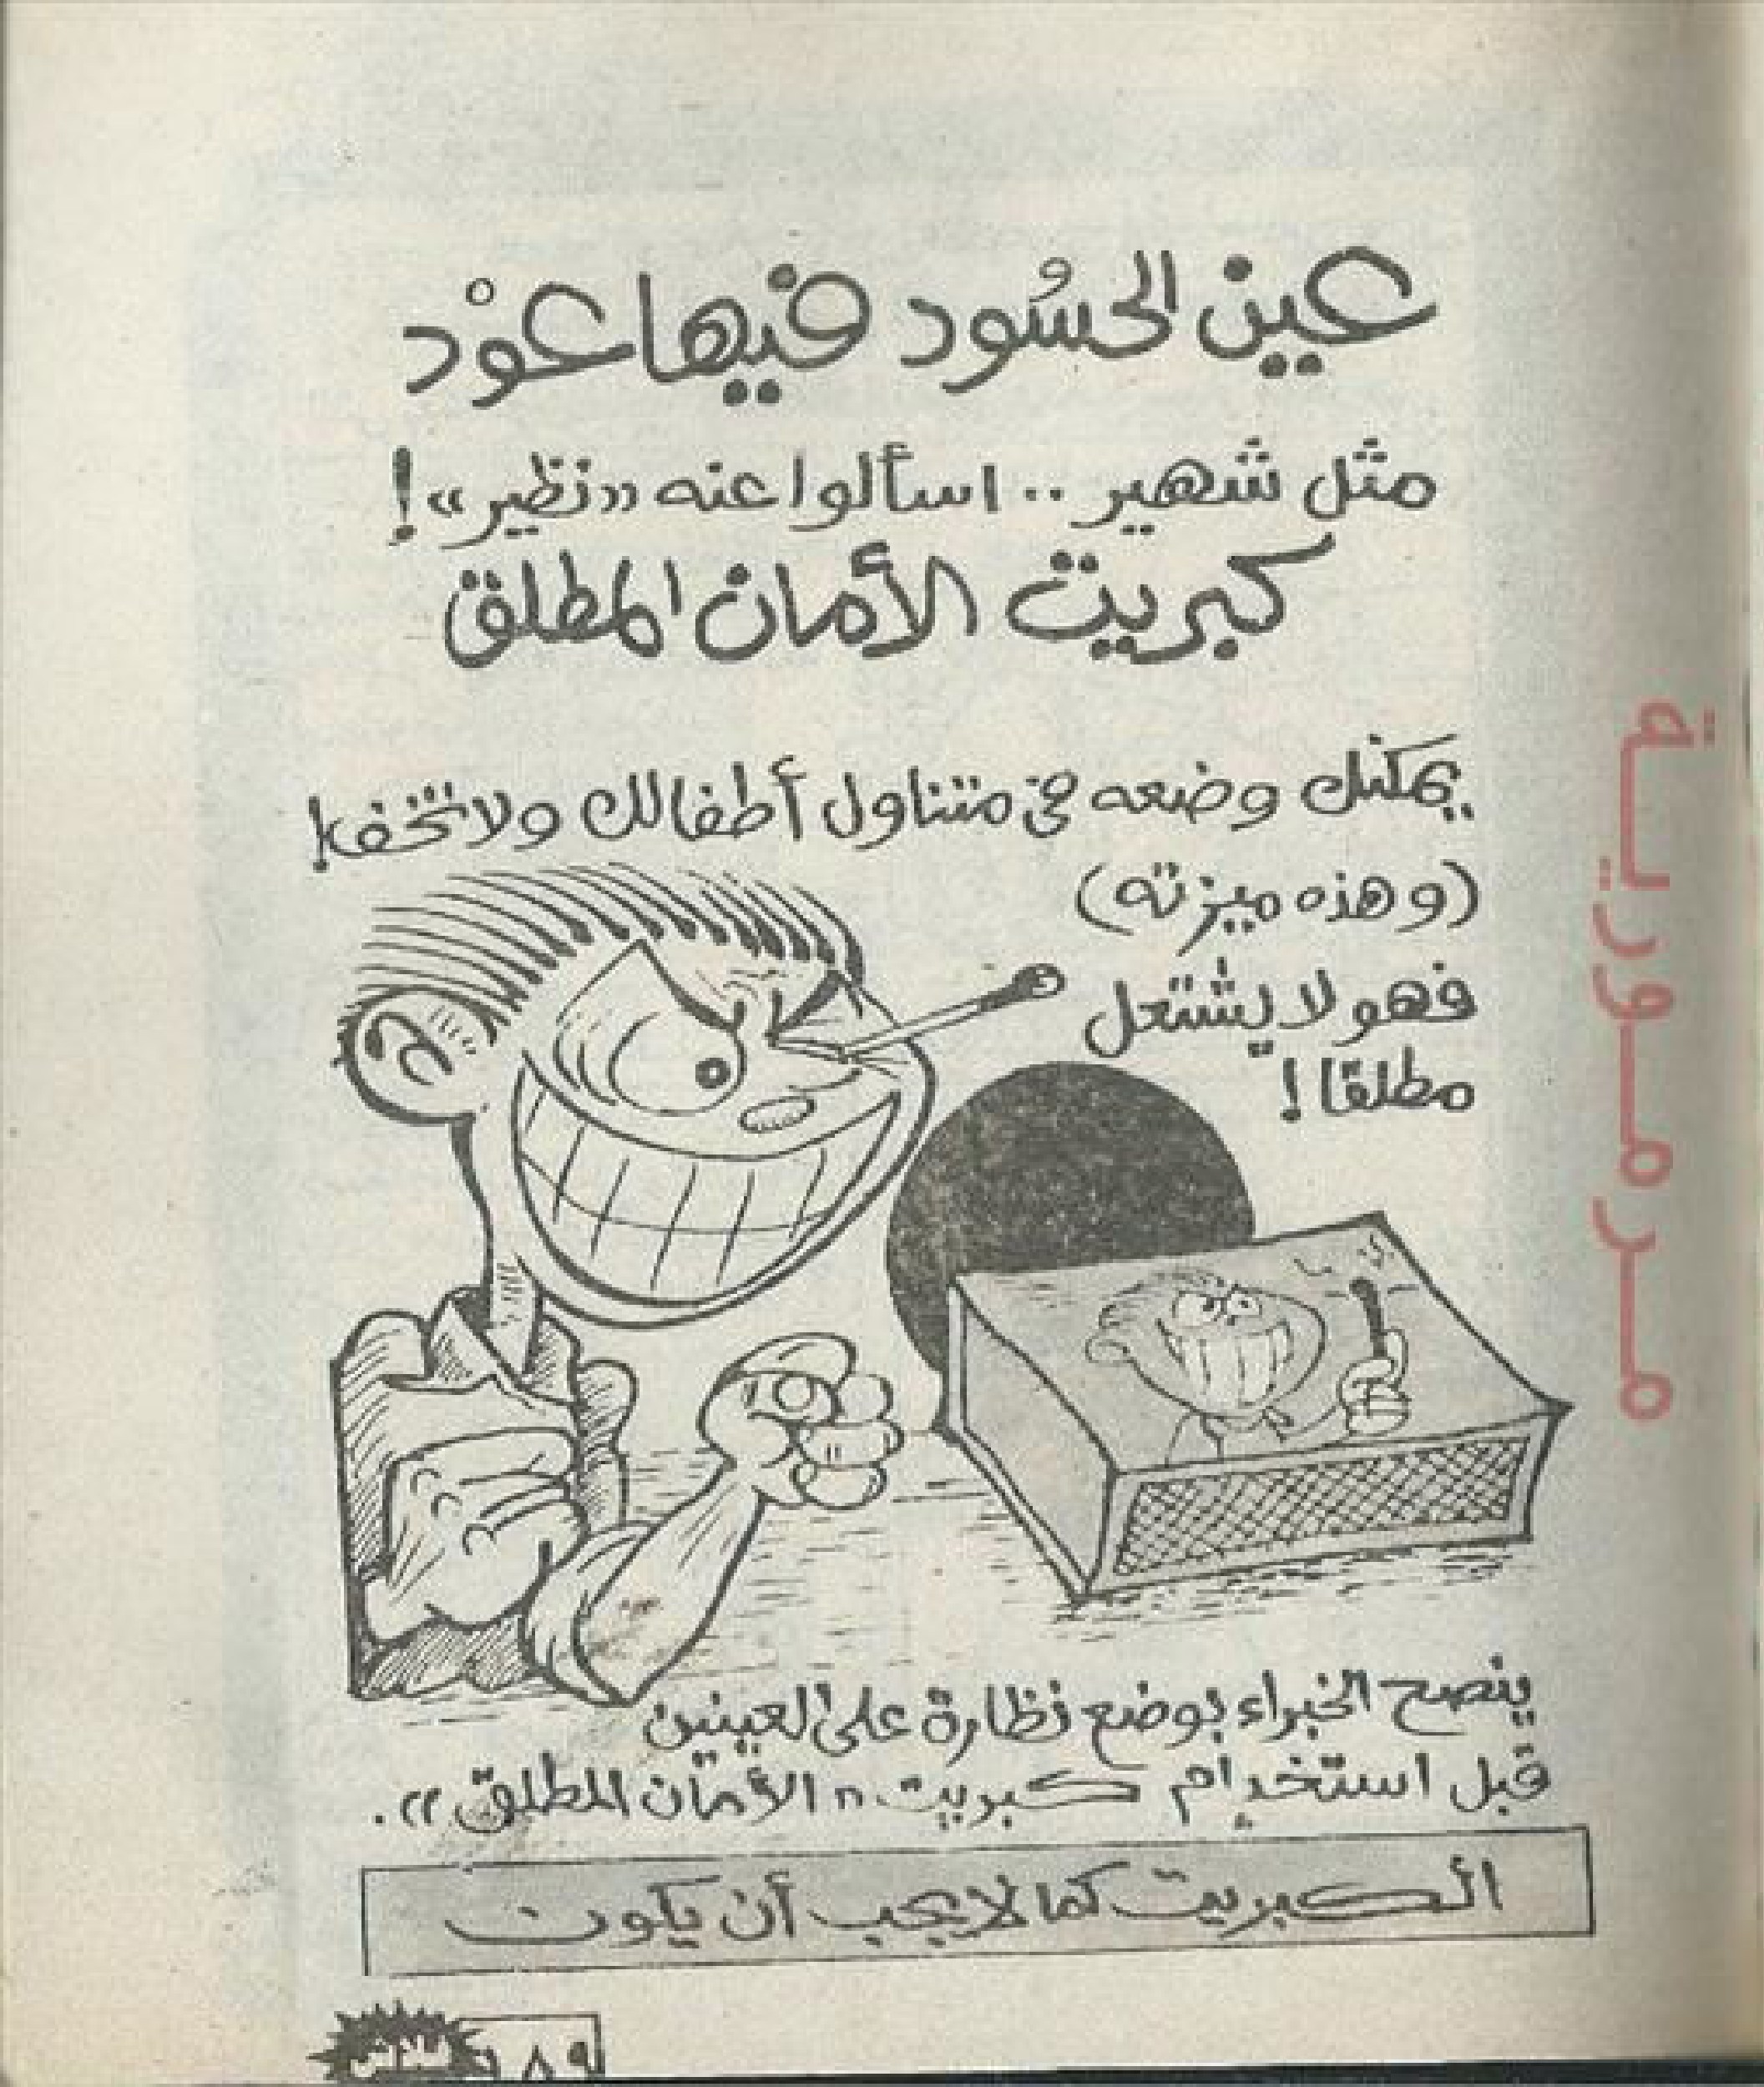 عين الحسُود فيها عوْد
مثل شهير .. اسألوا عنه «نظير»!
كبريت الأمان المطلق
يمكنك وضعه فى متناول أطفالك ولا تخف!
(وهذه ميزته)
فهو لا يشتعل
مطلقا!
ينصح الخبراء بوضع نظارة على العينين
قبل استخدام كبريت «الأمان المطلق».
الكبريت كما لا يجب أن يكون
٨٩
مرمورية